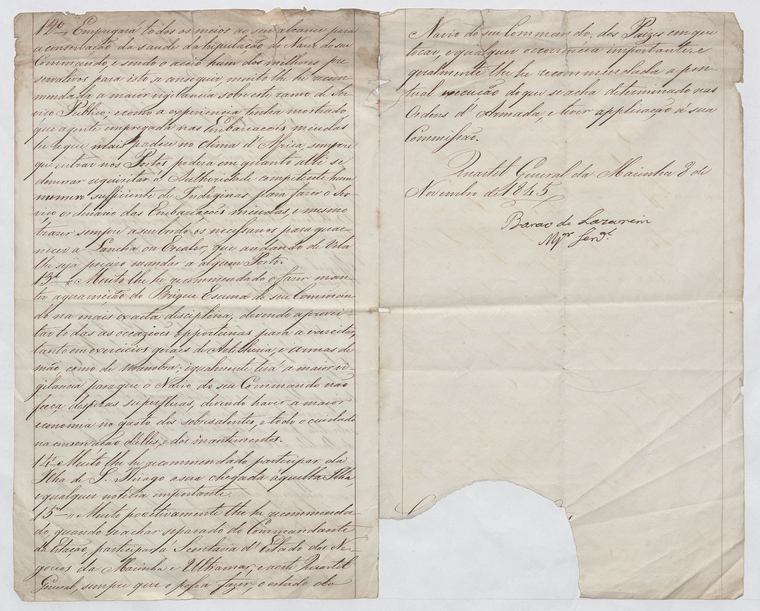 12º Empregará todos os meios ao seu alcance para
a conservação da saude da tripulação do Navio do seu
Commando, e sendo o aceio hum dos milhores pre-
servativos para isto conseguir muito lhe he recom-
mendada a maior vigilancia sobre este ramo de Ser-
viço Publico; e como a experiencia tenha mostrado
que a gente empregada nas Embarcacoẽs miudas
he a que mais padece no Clima d'Africa, sempre
que entrar nos Portos podera em quanto alli se
demorar requisitar á Authoridade competente hum
numero sufficiente de Indiginas para fazer o Ser-
viço ordinario das Embarcacoẽs miudas, e mesmo
trazer sempre a seu bordo os necessarios para guar-
necer a Lancha ou Escaler, que andando de Vela
lhe seja preciso mandar a algum Porto.
13º Muito lhe he recommendado o fazer man-
ter a guarnição do Brigue Escuna do seu Comman-
do na mais exacta disciplina, devendo aprovei-
tar todas as occazioẽs opportunas para a exercitar,
tanto em exercicios geraes de Artilheria, e armas de
mão, como de manobra; igualmente terá a maior vi-
gilancia para que o Navio do seu Commando não
faça despezas superfluas, devendo haver a maior
economia no gasto dos sobresalentes, e todo o cuidado
na conservação delles, e dos mantimentos.
14º Muito lhe he recommendado participar da
Ilha de S. Thiago a sua chegada áquella Ilha
e qualquer noticia importante.
15º Muito positivamente lhe he recommenda-
do, quando se achar separado do Commandante
da Estação participar á Secretaria d'Estado dos Ne-
gocios da Marinha e Ultramar, e a este Quartel
General, sempre que o possa fazer, o estado do
Navio do seu Commando, dos Paizes em que
tocar, e qualquer occorrencia importante, e
igualmente lhe he recommendada a pon-
tual execução do que se acha determinado nas
Ordens d'Armada, e tiver applicação á sua
Commissão.
Quartel General da Marinha 8 de
Novembro de 1845
Barão de Lazarem
Mjor Genal